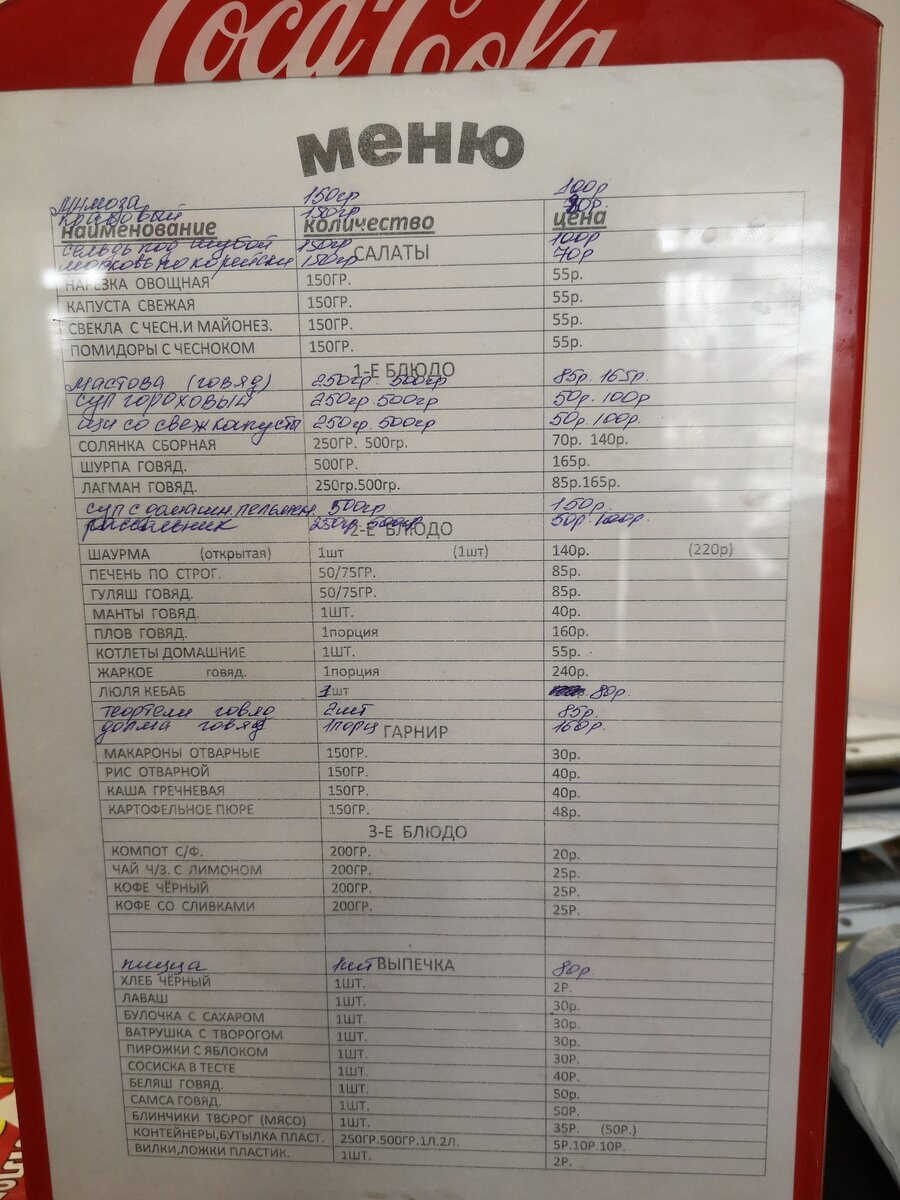 Coca-Cola
меню
мимоза 150гр 100р
крабовый 150гр 90р.
наименование количество цена
сельдь под шубой 150гр 100р
морковь по корейски 150гр 70р
САЛАТЫ
НАРЕЗКА ОВОЩНАЯ 150ГР. 55р.
КАПУСТА СВЕЖАЯ 150ГР. 55р.
СВЕКЛА С ЧЕСН.И МАЙОНЕЗ. 150ГР. 55р.
ПОМИДОРЫ С ЧЕСНОКОМ 150ГР. 55р.
1-Е БЛЮДО
мастова (говяд) 250гр 500гр 85р. 165р.
суп гороховый 250гр. 500гр 50р. 100р
щи со свеж капусты 250гр. 500гр 50р. 100р.
СОЛЯНКА СБОРНАЯ 250ГР. 500гр. 70р. 140р.
ШУРПА ГОВЯД. 500ГР. 165р.
ЛАГМАН ГОВЯД. 250гр.500гр. 85р.165р.
суп с домашн. пельмен. 500гр 150р.
рассольник 250гр. 500гр 50р. 100р.
2-Е БЛЮДО
ШАУРМА (открытая) 1шт (1шт) 140р. (220р)
ПЕЧЕНЬ ПО СТРОГ. 50/75ГР. 85р.
ГУЛЯШ ГОВЯД. 50/75ГР. 85р.
МАНТЫ ГОВЯД. 1ШТ. 40р.
ПЛОВ ГОВЯД. 1порция 160р.
КОТЛЕТЫ ДОМАШНИЕ 1ШТ. 55р.
ЖАРКОЕ говяд. 1порция 240р.
ЛЮЛЯ КЕБАБ 1шт 80р.
тефтели говяд 2шт 85р.
долма говяд 1порц 160р.
ГАРНИР
МАКАРОНЫ ОТВАРНЫЕ 150ГР. 30р.
РИС ОТВАРНОЙ 150ГР. 40р.
КАША ГРЕЧНЕВАЯ 150ГР. 40р.
КАРТОФЕЛЬНОЕ ПЮРЕ 150ГР. 48р.
3-Е БЛЮДО
КОМПОТ С/Ф. 200ГР. 20р.
ЧАЙ Ч/З. С ЛИМОНОМ 200ГР. 25р.
КОФЕ ЧЁРНЫЙ 200ГР. 25Р.
КОФЕ СО СЛИВКАМИ 200ГР. 25Р.
пицца 1шт 80р.
ВЫПЕЧКА
ХЛЕБ ЧЁРНЫЙ 1ШТ. 2Р.
ЛАВАШ 1ШТ. 30р.
БУЛОЧКА С САХАРОМ 1ШТ. 30р.
ВАТРУШКА С ТВОРОГОМ 1ШТ. 30р.
ПИРОЖКИ С ЯБЛОКОМ 1ШТ. 30Р.
СОСИСКА В ТЕСТЕ 1ШТ. 40Р.
БЕЛЯШ ГОВЯД. 1ШТ. 50р.
САМСА ГОВЯД. 1ШТ. 50Р.
БЛИНЧИКИ ТВОРОГ (МЯСО) 1ШТ. 35Р. (50Р.)
КОНТЕЙНЕРЫ,БУТЫЛКА ПЛАСТ. 250ГР.500ГР.1Л.2Л. 5Р.10Р.10Р.
ВИЛКИ,ЛОЖКИ ПЛАСТИК. 1ШТ. 2Р.